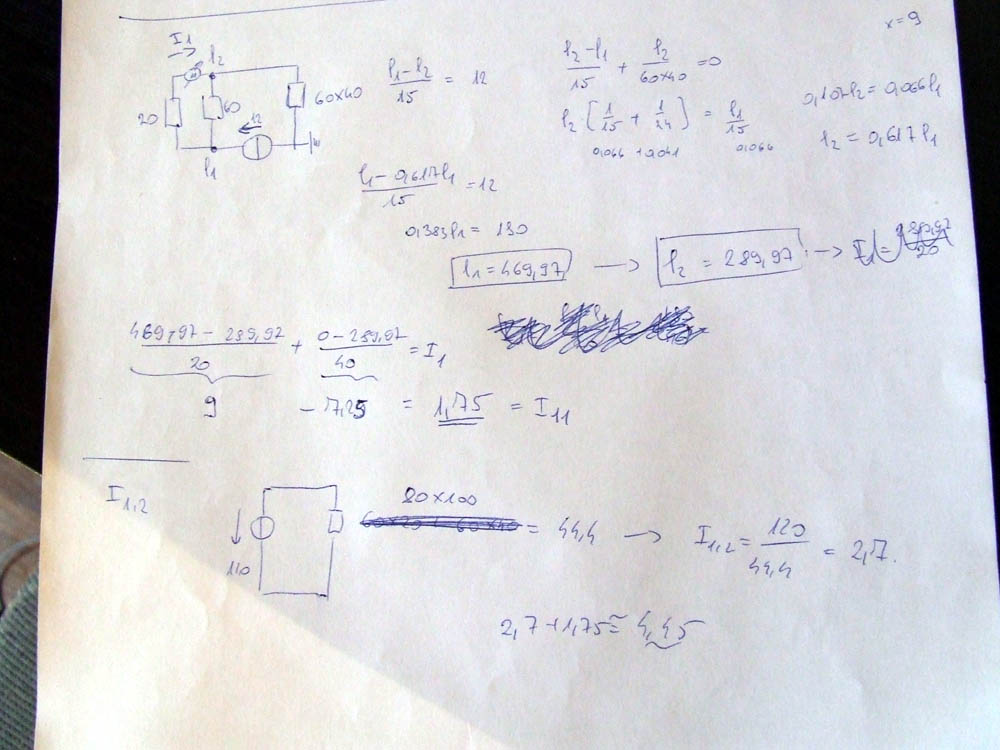 x = 9
I1
l2
20
60
60x40
12
l1
l1 - l2 / 15 = 12
l2 - l1 / 15 + l2 / 60x40 = 0
l2 [ 1/15 + 1/24 ] = l1 / 15
0,066 + 0,041 0,066
0,107l2 = 0,066l1
l2 = 0,617l1
l1 - 0,617l1 / 15 = 12
0,383l1 = 180
l1 = 469,97 → l2 = 289,97 → I1 =
469,97 - 289,97 / 20 + 0 - 289,97 / 40 = I1
9 - 7,25 = 1,75 = I11
I1,2
110
80x100
= 44,4 → I1,2 = 120 / 44,4 = 2,7.
2,7 + 1,75 ≅ 4,45